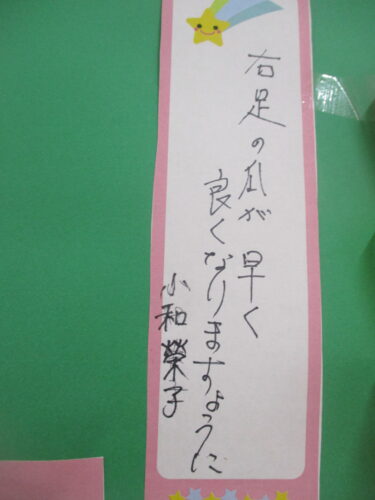 右足の爪が早く
良くなりますように
小和榮子